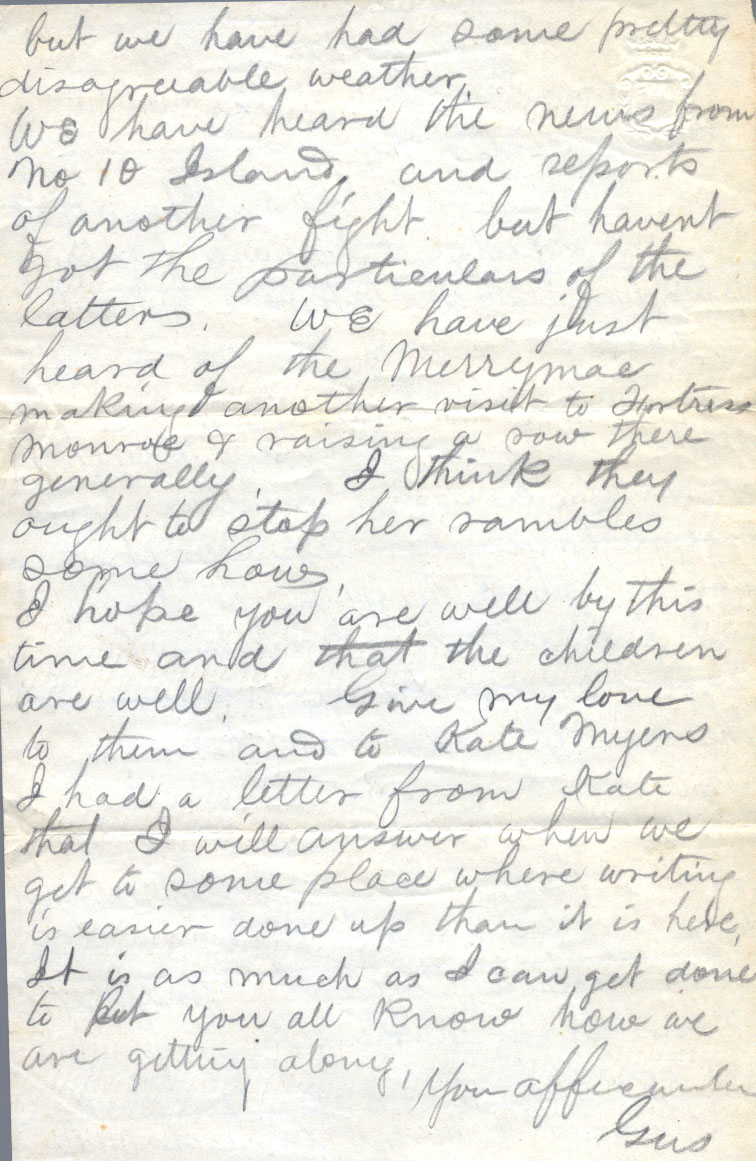 but we have had some pretty
disagreeable weather.
We have heard the news from
No 10 Island, and reports
of another fight but havent
got the particulars of the
latters. We have just
heard of the Merrymac
making another visit to Fortress
Monroe & raising a row there
generally. I think they
ought to stop her rambles
some how,
I hope you are well by this
time and that the children
are well. Give my love
to them and to Kate Myers
I had a letter from Kate
that I will answer when we
get to some place where writing
is easier done up than it is here,
It is as much as I can get done
to let you all know how we
are getting along,
Gus